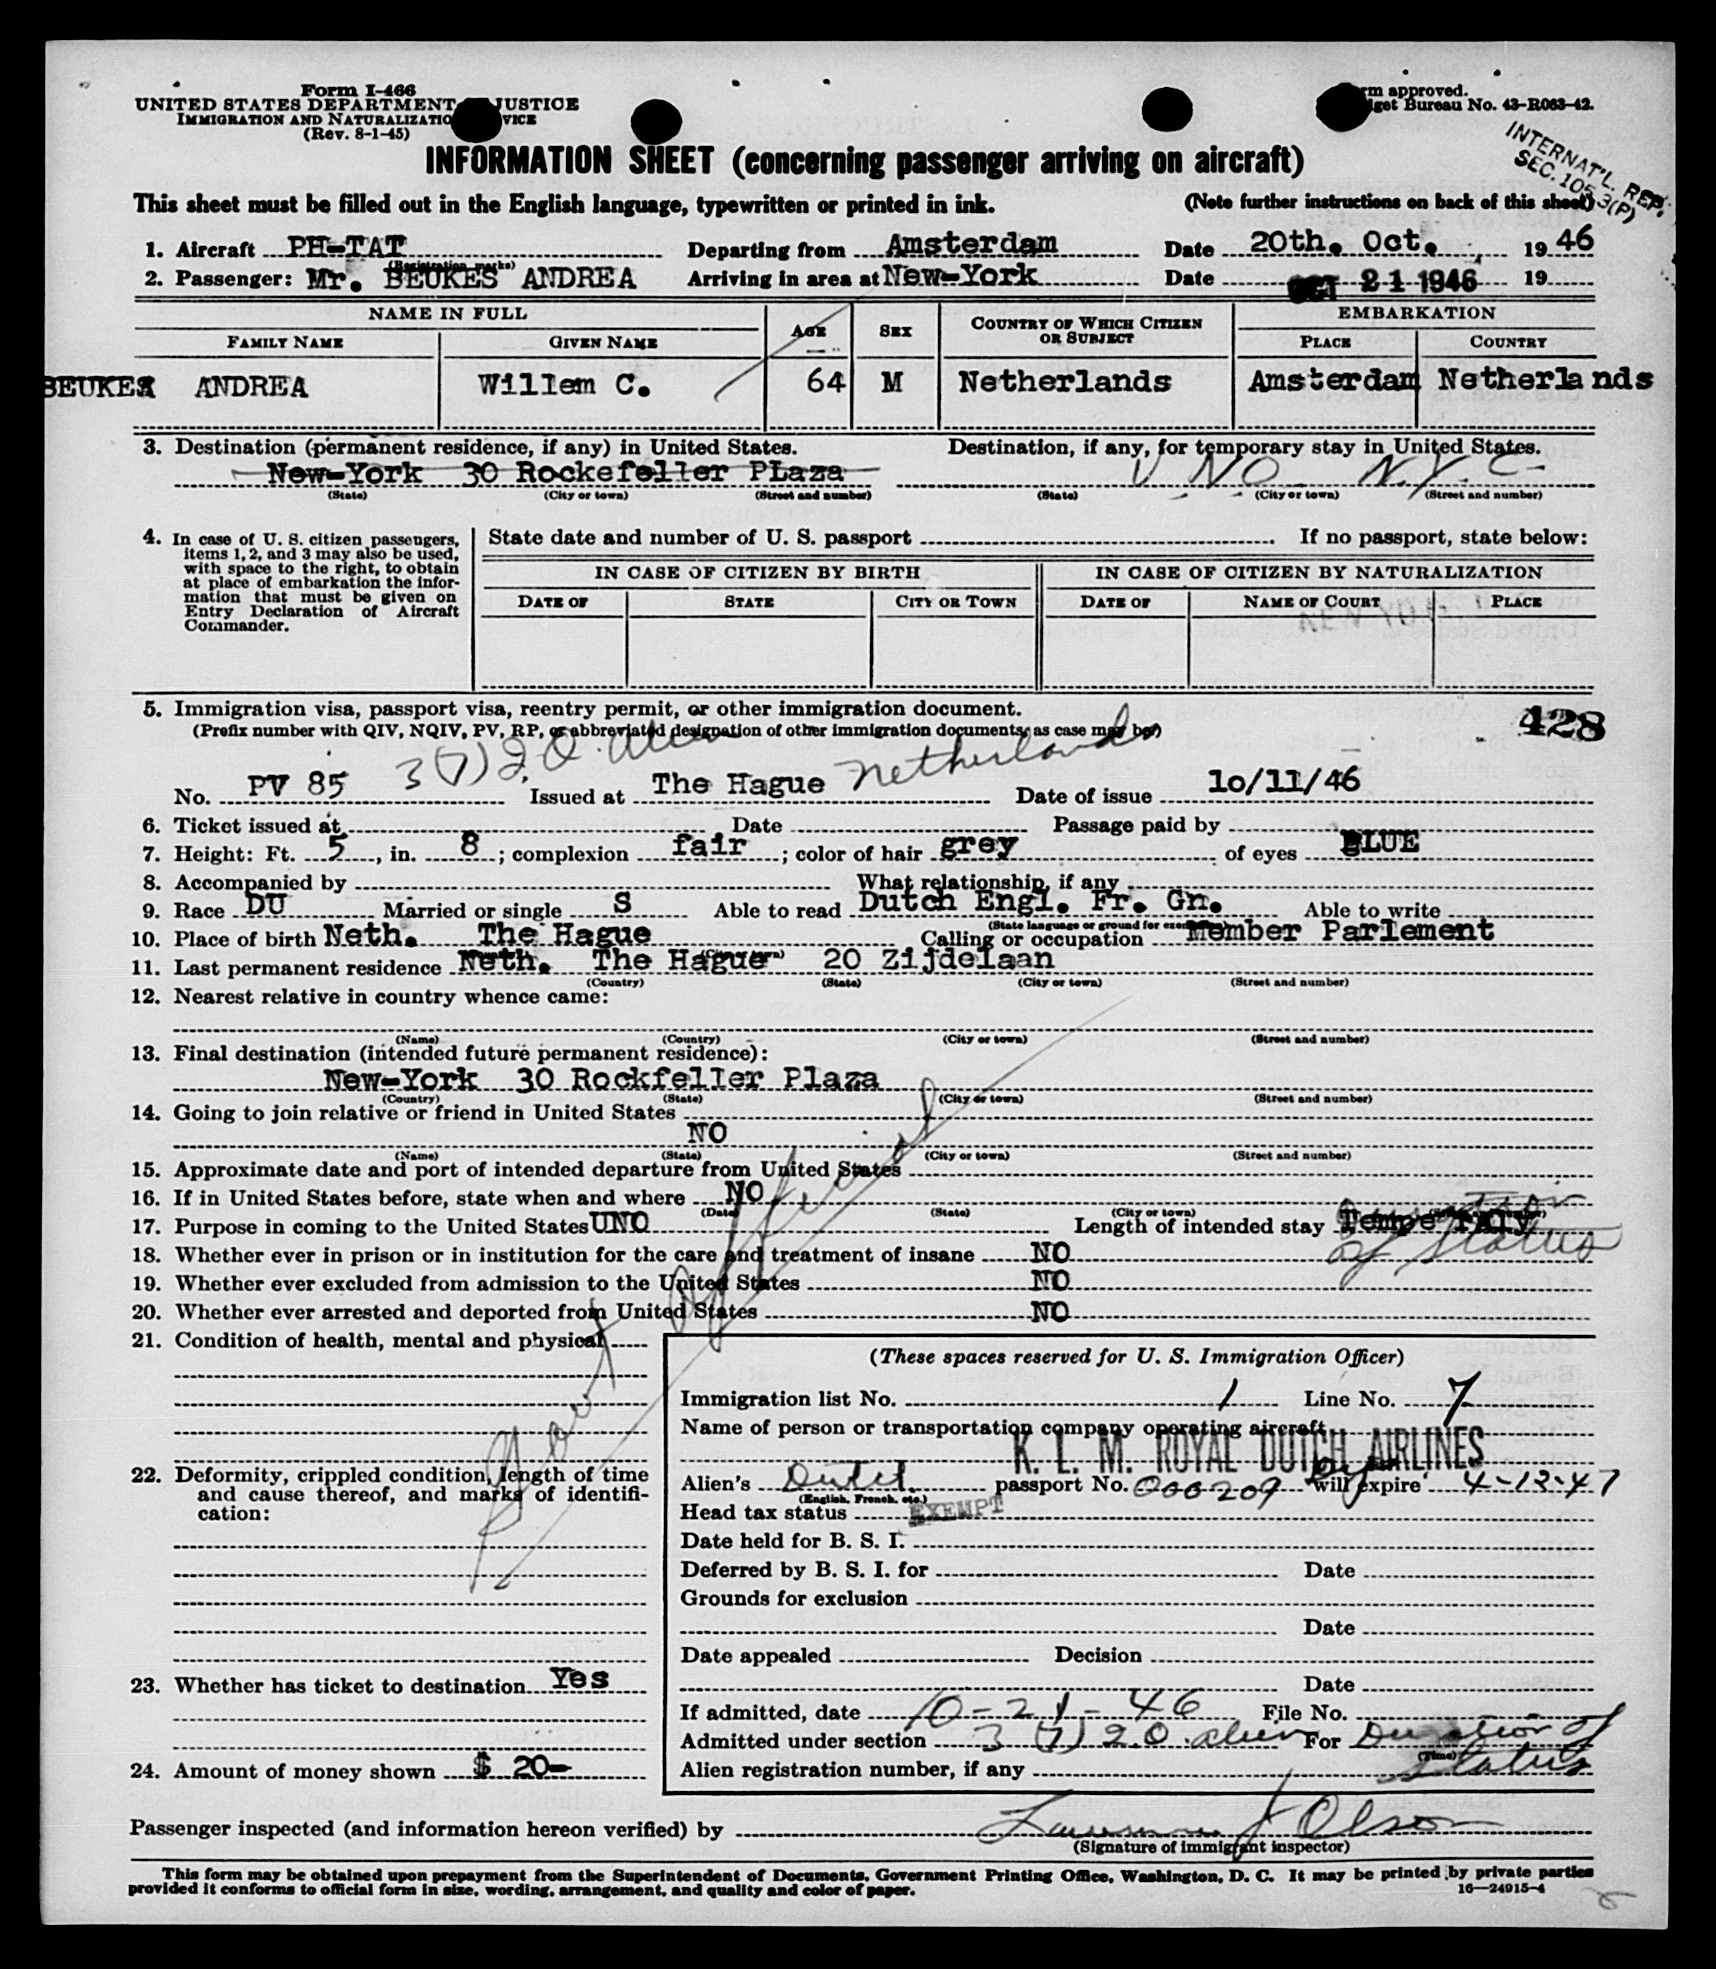 Form I-466
UNITED STATES DEPARTMENT JUSTICE
IMMIGRATION AND
(Rev. 8-1-45)
approved.
Bureau No. 43-R063-42.
INTERNAT'L. REP.
SEC. 105.3(P)
INFORMATION SHEET (concerning passenger arriving on aircraft)
This sheet must be filled out in the English language, typewritten or printed in ink. (Note further instructions on back of this sheet)
1. Aircraft PH-TAT Departing from Amsterdam Date 20th. Oct. 1946
(Registration marks)
2. Passenger: Mr. BEUKES ANDREA Arriving in area at New-York Date OCT 21 1946 19
NAME IN FULL AGE SEX COUNTRY OF WHICH CITIZEN OR SUBJECT EMBARKATION
FAMILY NAME GIVEN NAME PLACE COUNTRY
ANDREA Willem C. 64 M Netherlands Amsterdam Netherlands
3. Destination (permanent residence, if any) in United States. Destination, if any, for temporary stay in United States.
New-York 30 Rockefeller PLaza U.N.O. N.Y.C.
(State) (City or town) (Street and number) (State) (City or town) (Street and number)
4. In case of U. S. citizen passengers, items 1, 2, and 3 may also be used, with space to the right, to obtain at place of embarkation the information that must be given on Entry Declaration of Aircraft Commander.
State date and number of U. S. passport If no passport, state below:
IN CASE OF CITIZEN BY BIRTH IN CASE OF CITIZEN BY NATURALIZATION
DATE OF STATE CITY OR TOWN DATE OF NAME OF COURT PLACE
5. Immigration visa, passport visa, reentry permit, or other immigration document.
(Prefix number with QIV, NQIV, PV, RP, or abbreviated designation of other immigration documents, as case may be)
428
3(7) I.O. alien Netherlands
No. PV 85 Issued at The Hague Date of issue 10/11/46
6. Ticket issued at Date Passage paid by
7. Height: Ft. 5, in. 8; complexion fair; color of hair grey of eyes BLUE
8. Accompanied by What relationship, if any
9. Race DU Married or single S Able to read Dutch Engl. Fr. Gn. Able to write
10. Place of birth Neth. The Hague Calling or occupation Member Parlement
11. Last permanent residence Neth. The Hague 20 Zijdelaan
(Country) (State) (City or town) (Street and number)
12. Nearest relative in country whence came:
(Name) (Country) (City or town) (Street and number)
13. Final destination (intended future permanent residence):
New-York 30 Rockfeller Plaza
(Country) (State) (City or town) (Street and number)
14. Going to join relative or friend in United States
NO
(Name) (State) (City or town) (Street and number)
15. Approximate date and port of intended departure from United States
16. If in United States before, state when and where NO
(Date) (State) (City or town)
17. Purpose in coming to the United States UNO Length of intended stay
of status
18. Whether ever in prison or in institution for the care and treatment of insane NO
19. Whether ever excluded from admission to the United States NO
20. Whether ever arrested and deported from United States NO
Govt official
21. Condition of health, mental and physical
22. Deformity, crippled condition, length of time and cause thereof, and marks of identification:
23. Whether has ticket to destination Yes
24. Amount of money shown $ 20-
(These spaces reserved for U. S. Immigration Officer)
Immigration list No. 1 Line No. 7
Name of person or transportation company operating aircraft
K. L. M. ROYAL DUTCH AIRLINES
Alien's Dutch passport No. 000209 will expire 4-12-47
(English, French, etc.)
Head tax status EXEMPT
Date held for B. S. I.
Deferred by B. S. I. for Date
Grounds for exclusion
Date
Date appealed Decision
Date
If admitted, date 10-21-46 File No.
Admitted under section 3 (7) I.O. alien For Duration of status
(Time)
Alien registration number, if any
Passenger inspected (and information hereon verified) by J Olson
(Signature of immigrant inspector)
This form may be obtained upon prepayment from the Superintendent of Documents, Government Printing Office, Washington, D. C. It may be printed by private parties
provided it conforms to official form in size, wording, arrangement, and quality and color of paper.
16—24915-4